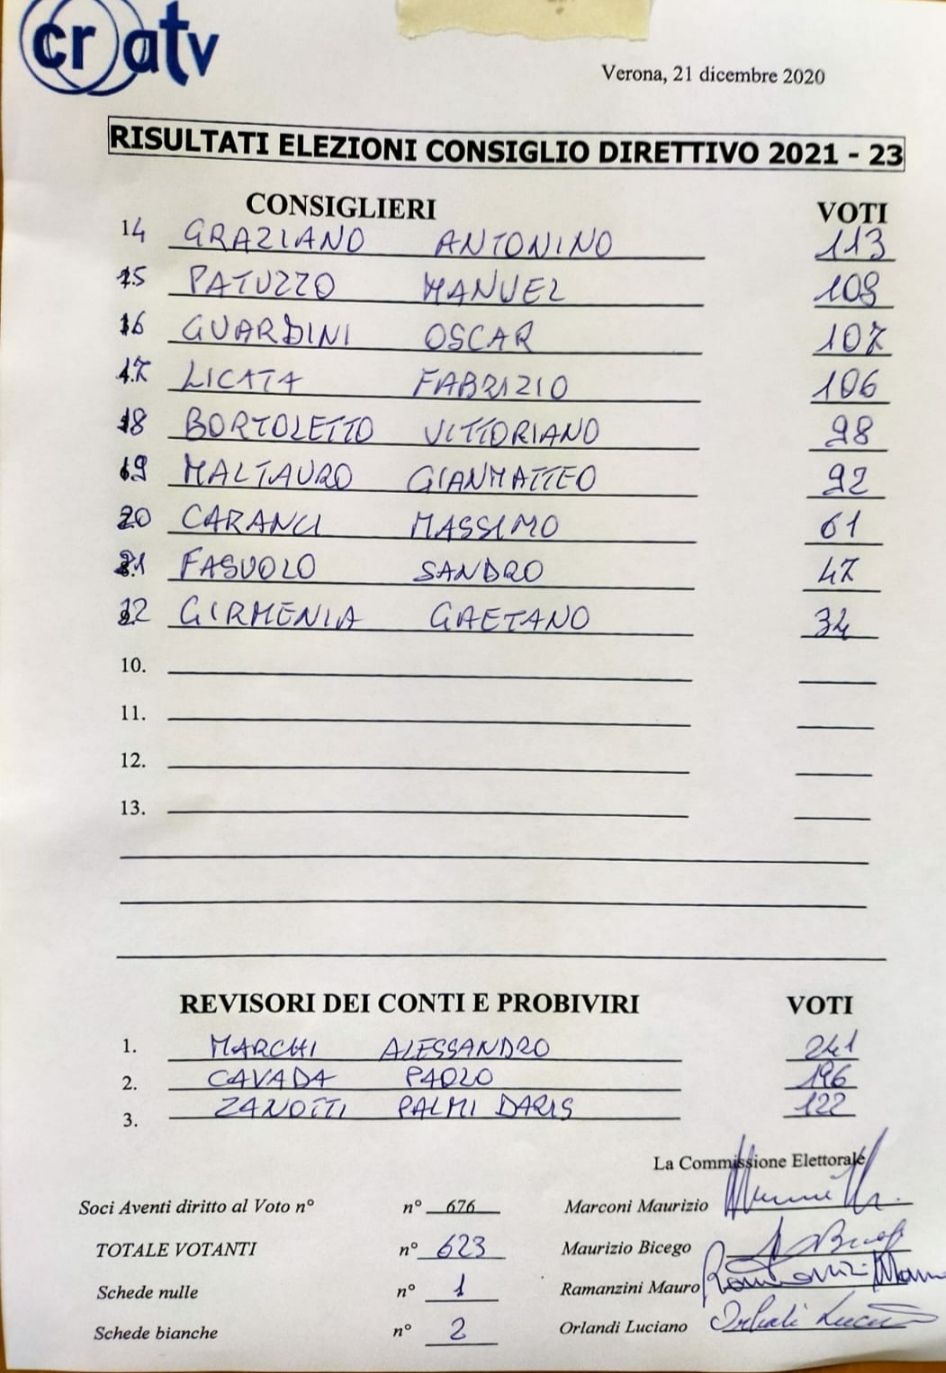 cratv
Verona, 21 dicembre 2020
RISULTATI ELEZIONI CONSIGLIO DIRETTIVO 2021 - 23
CONSIGLIERI VOTI
14 GRAZIANO ANTONINO 113
15 PATUZZO MANUEL 109
16 GUARDINI OSCAR 107
17 LICATA FABRIZIO 106
18 BORTOLETTO VITTORIANO 98
19 MALTAURO GIANMATTEO 92
20 CARANCI MASSIMO 61
21 FASUOLO SANDRO 47
22 GIRMENIA GAETANO 34
10.
11.
12.
13.
REVISORI DEI CONTI E PROBIVIRI VOTI
1. MARCHI ALESSANDRO 241
2. CAVADA PAOLO 196
3. ZANOTTI PALMI DARIS 122
La Commissione Elettorale
Soci Aventi diritto al Voto n° n° 676 Marconi Maurizio
TOTALE VOTANTI n° 623 Maurizio Bicego Bicego
Schede nulle n° 1 Ramanzini Mauro Ramanzini Mauro
Schede bianche n° 2 Orlandi Luciano Orlandi Luciano